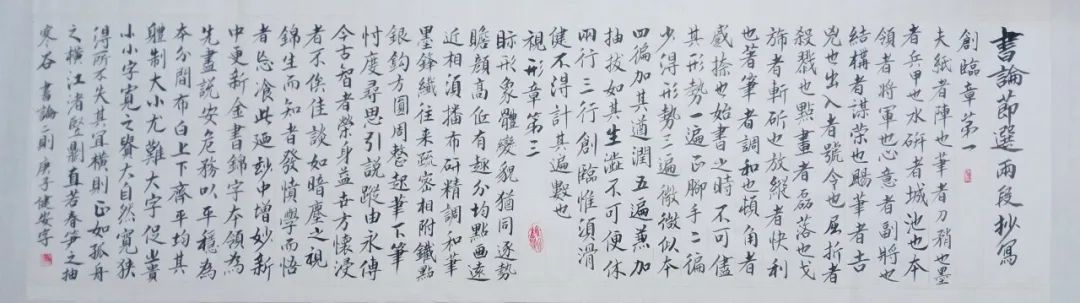 書論節選兩段抄寫
創臨章第一
夫紙者陣也筆者刀稍也墨
者兵甲也水硏者城池也本
領者將軍也心意者副將也
結構者謀策也颺筆者吉
兇也出入者號令也屈折者
殺戮也點畫者磊落也戈
旆者斬斫也放縱者快利
也著筆者調和也頓角者
蹙捺也始書之時不可儘
其形勢一遍正腳手二徧
少得形勢三遍微微似本
四徧加其遒潤五遍兼加
抽拔如其生澁不可便休
兩行三行創臨惟須滑
健不得計其遍數也
視形章第三
視形象體變貌猶同逐勢
瞻顏高低有趣分均點畫遠
近相須播布研精調和筆
墨鋒纖往來疏密相附鐵點
銀鈎方圓周整起筆下筆
忖度尋思引説蹤由永傳
今古智者榮身益世方懷浸
者不俟佳談如暗塵之視
錦生而知者發憤學而悟
者忘飡此廼妙中增妙新
中更新金書錦字本領為
先盡說安危務以平穩為
本分間布白上下齊平均其
體制大小尤難大字促之貴
小小字寬之貴大自然寬狹
得所不失其宜橫則正如孤舟
之橫江渚豎則直若春筍之抽
寒谷 書論二則 庚子健安字